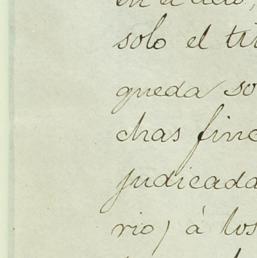 en el
solo el
queda so
chas finc
judicada
rio) á los